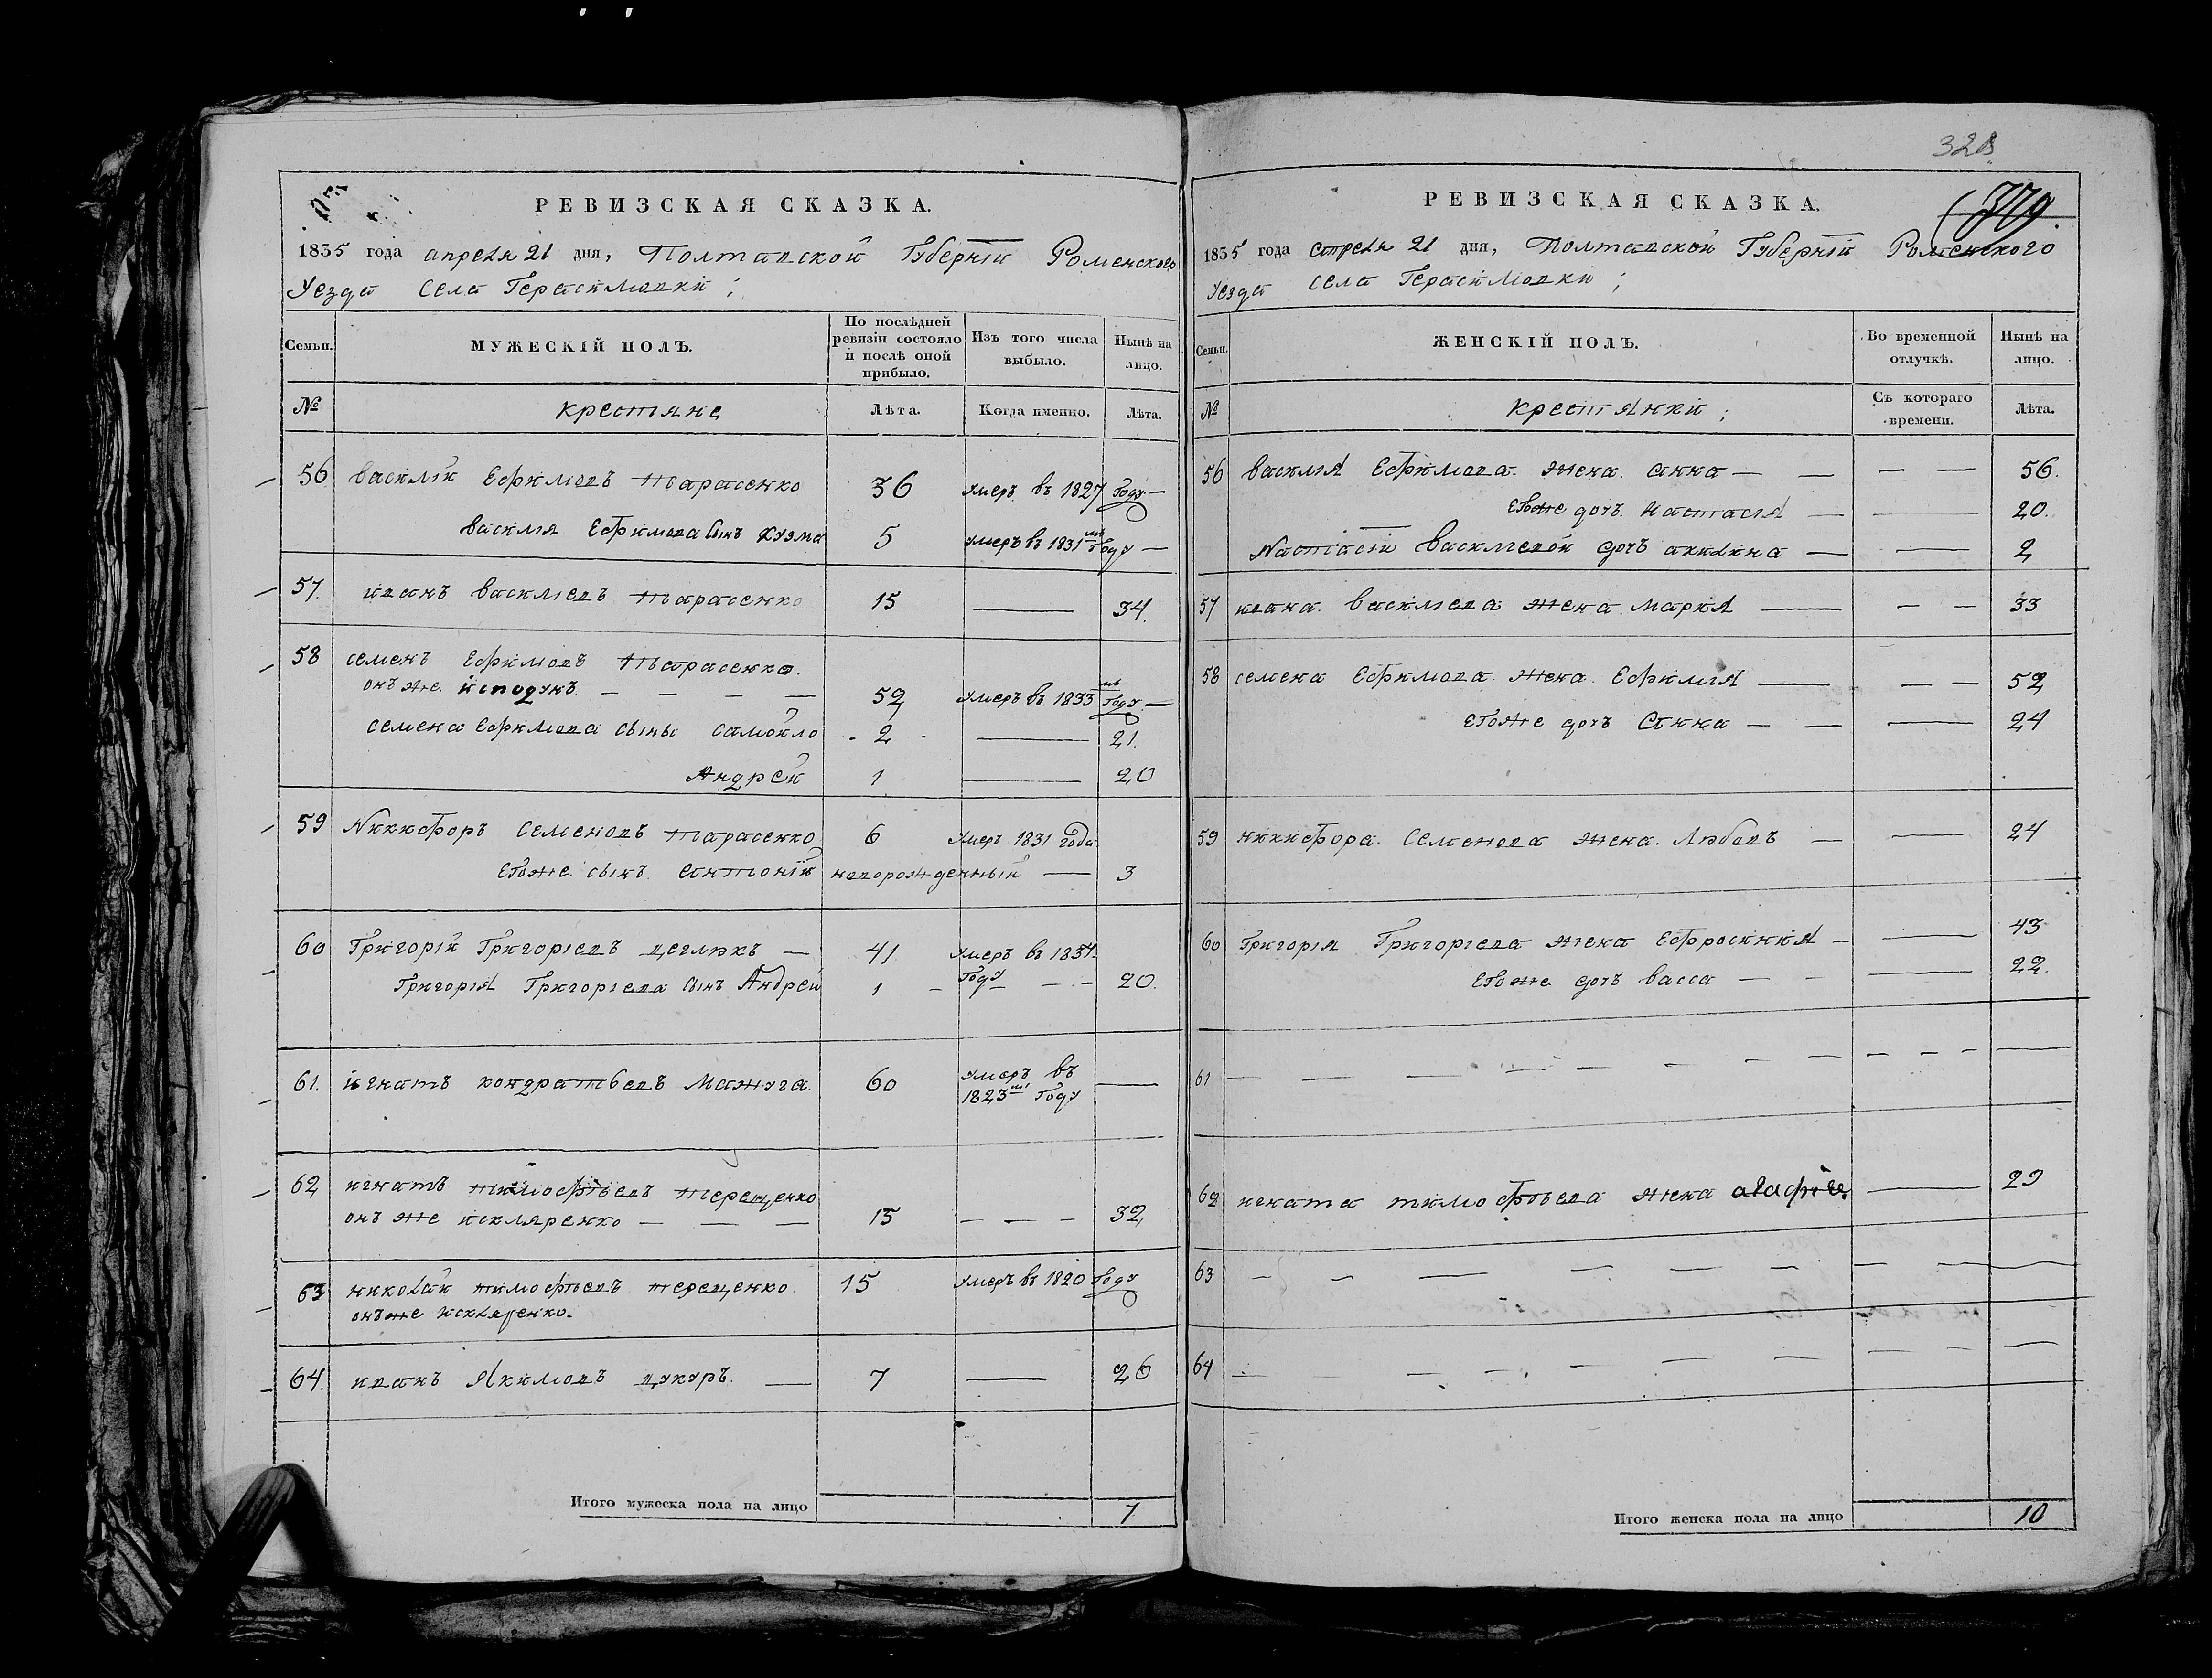 328
РЕВИЗСКАЯ СКАЗКА.
1835 года апреля 21 дня, Полтавской Губерніи Роменского
Уезда Села Герасимовки;
Семьи. МУЖЕСКІЙ ПОЛЪ. По послѣдней ревизіи состояло и послѣ оной прибыло. Изъ того числа выбыло. Нынѣ на лицо.
№ крестяне Лѣта. Когда именно. Лѣта.
56 василій Ефимовъ тарасенко 36 умеръ въ 1827 Году —
василія Ефимова сынъ кузма 5 умеръ въ 1831мъ Году —
57. иванъ василіевъ тарасенко 15 — 34.
58 семенъ Ефимовъ тарасенко.
онъ же исподунъ — — — — 52 умеръ въ 1833мъ Году —
семена Ефимова сыны самойло 2 — 21.
Андрей 1 — 20
59 Никифоръ Семеновъ тарасенко 6 умеръ 1831 Года
Егоже сынъ антоній новорожденный — 3
60 Григорій Григоріевъ цеглюкъ — 41 умеръ въ 1834
Григорія Григоріева сынъ Андрей 1 — Году — — 20.
61. игнатъ кондратьевъ Мажуга. 60 умеръ въ —
1823мъ Году
62 игнатъ тимофѣевъ терещенко
онъ же искляренко — — — 15 — — — 32
63 николай тимофѣевъ терещенко. 15 умеръ въ 1820 Году
онъже искляренко.
64. иванъ Якимовъ цукуръ. — 7 — 26
Итого мужеска пола на лицо 7
РЕВИЗСКАЯ СКАЗКА. 379
1835 года апреля 21 дня, Полтавской Губерніи Роменского
Уезда села Герасимовки;
Семьи. ЖЕНСКІЙ ПОЛЪ. Во временной отлучкѣ. Нынѣ на лицо.
№ крестянки; Съ котораго времени. Лѣта.
56 василія Ефимова жена анна — — — — 56.
Егоже дочъ настасія — — 20.
Настасіи василиевой дочъ акилина — — 2
57 ивана василіева жена марія — — — 33
58 семена Ефимова жена Ефимія — — — 52
Егоже дочъ анна — — — 24
59 никифора Семенова жена Любовъ — — 24
60 григорія Григоріева жена Ефросинія — — 43
Егоже дочъ васса — — — 22.
61 — — — — — — — — — — —
62 игната тимофѣева жена агафія — 29
63 — — — — — — — — — —
64 — — — — — — — — — —
Итого женска пола на лицо 10